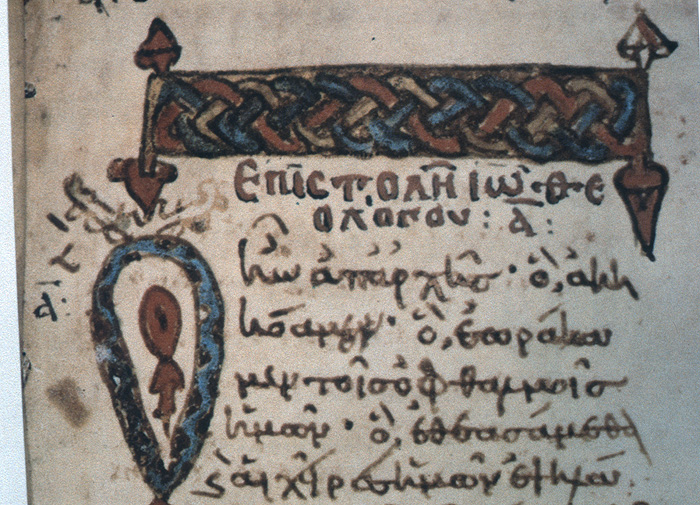 ΕΠΙCΤΟΛΗ ΙΩ·Θ·Ε
ΟΛΟΓΟΥ : Α̅:
Ὃ ἦν ἀπαρχῆς· ὃ, ἀκη
κόαμεν· ὃ, ἑωράκα
μεν τοῖς ὀφθαλμοῖς
ἡμῶν· ὃ, ἐθεασάμεθα
ϗ αἱ χῖρες ἡμῶν